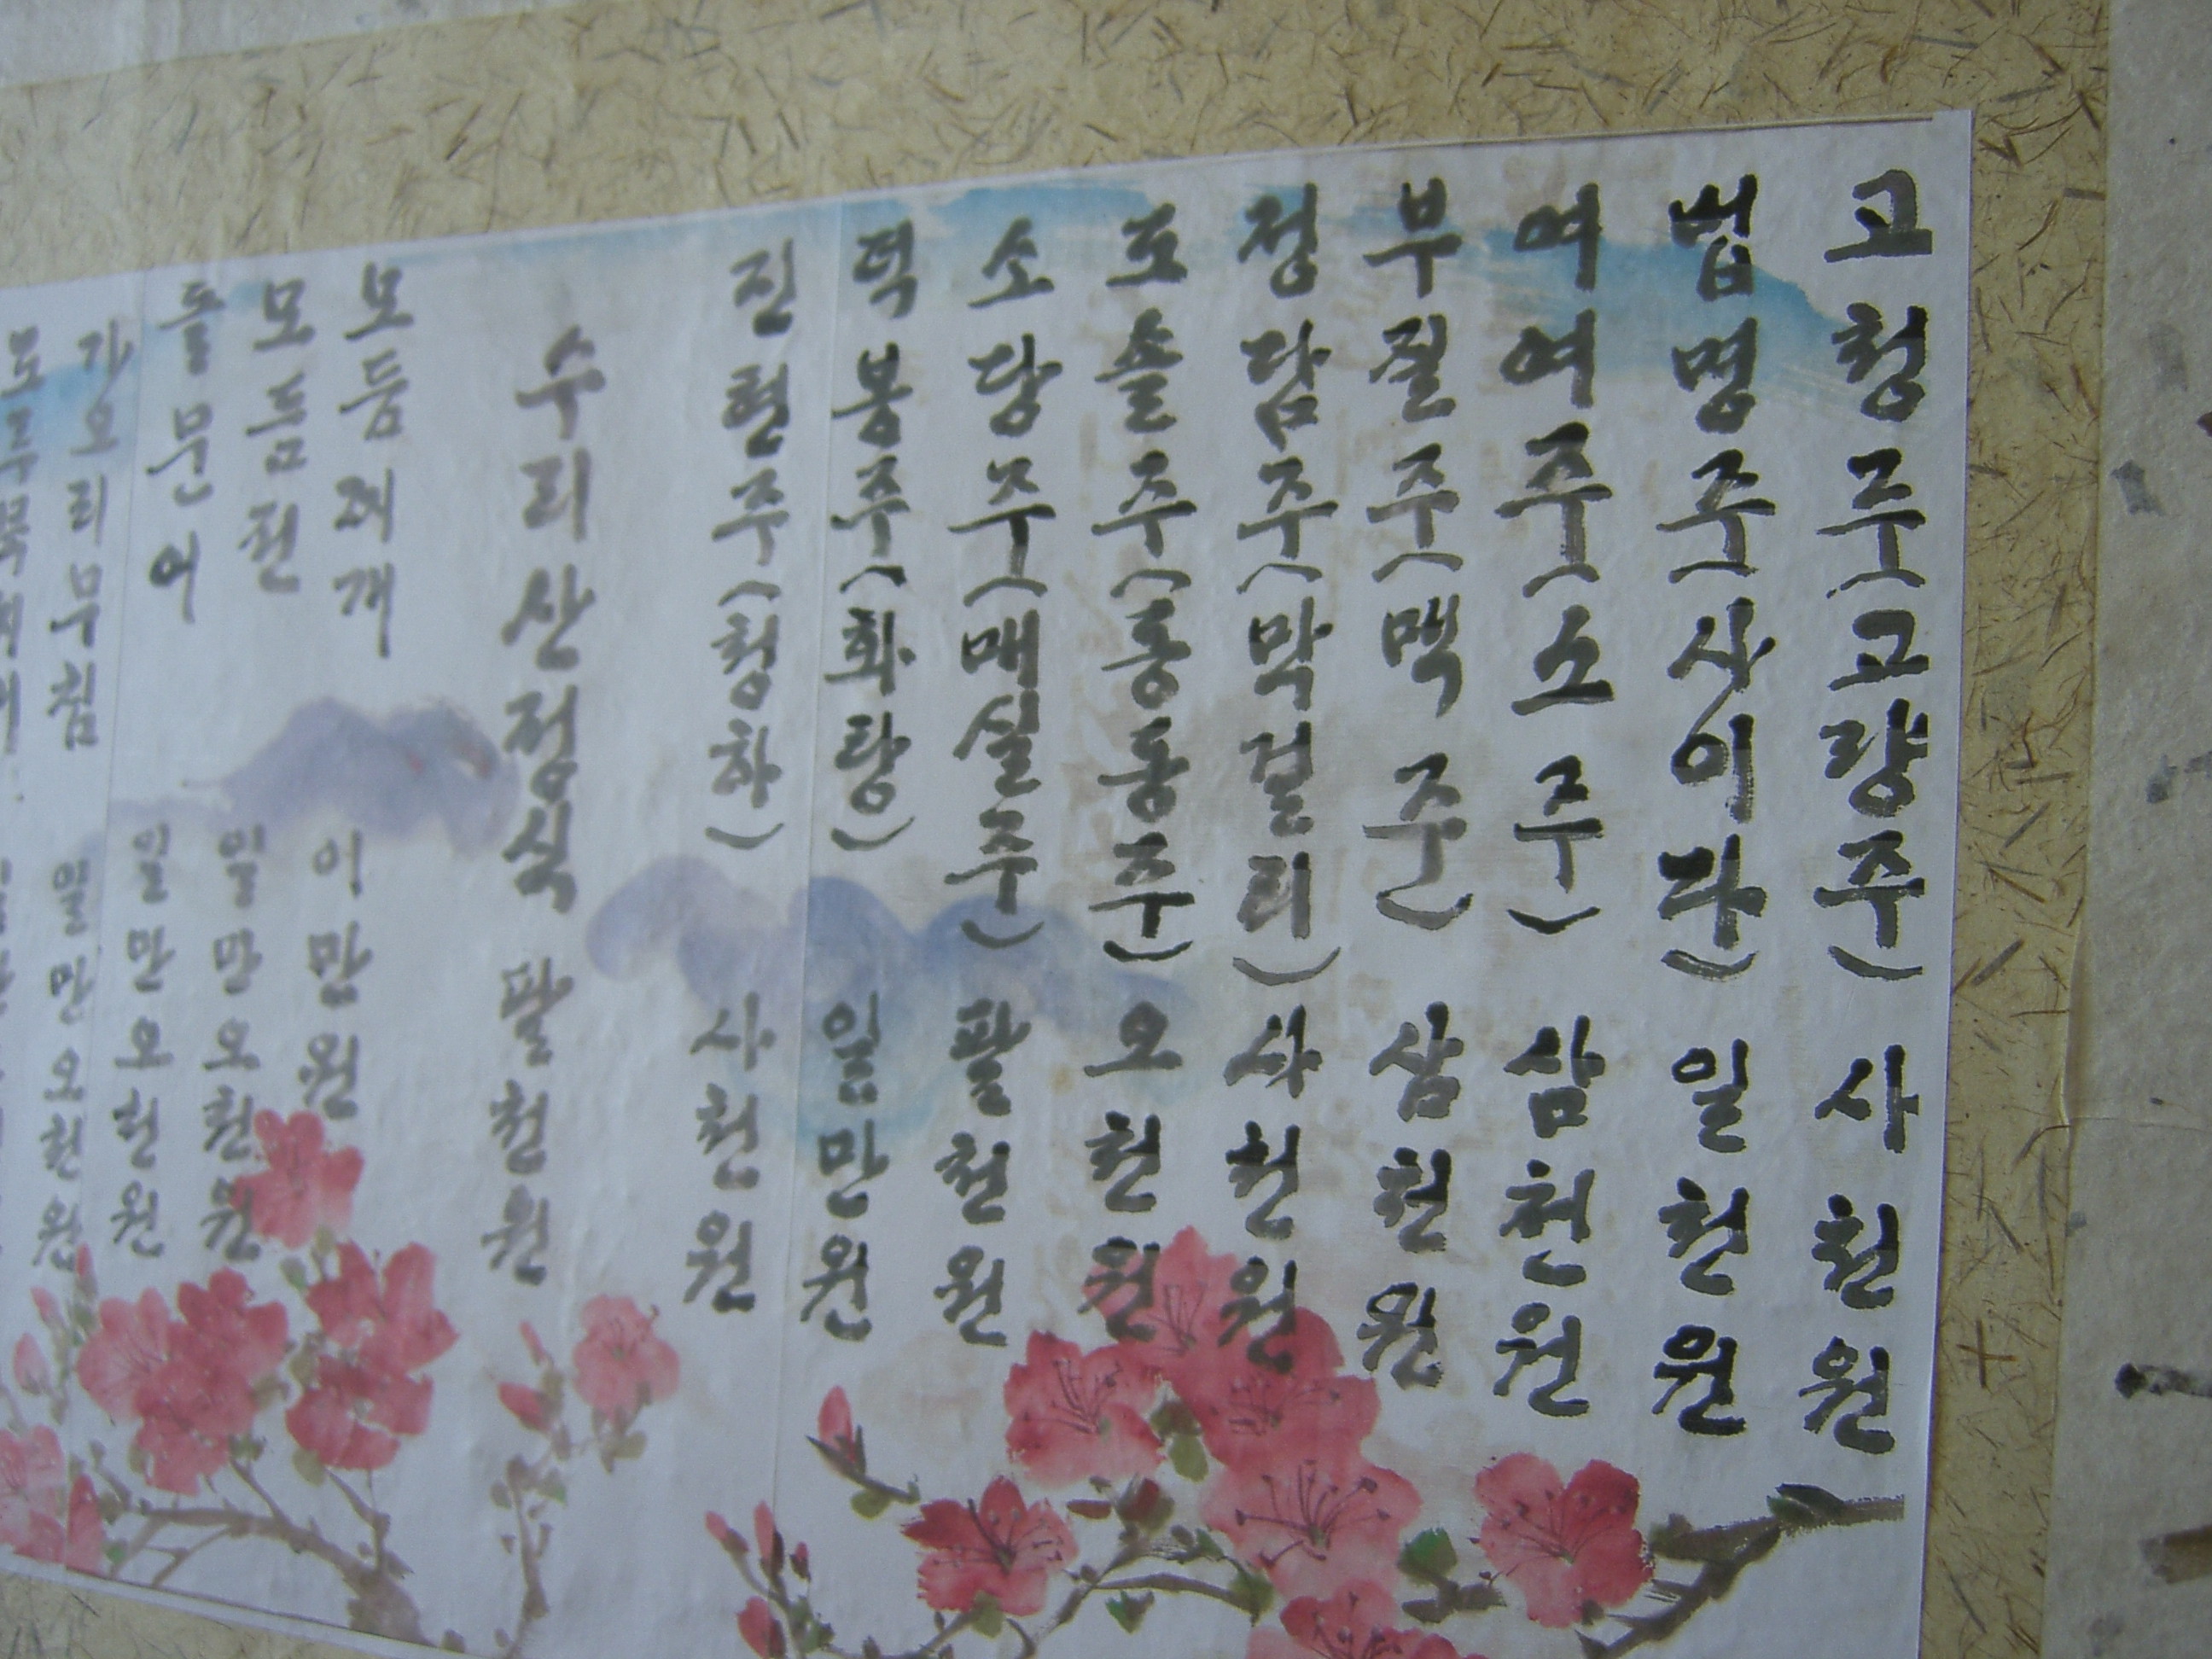 고청주(고량주) 사천원
법명주(사이다) 일천원
여여주(소주) 삼천원
부절주(맥주) 삼천원
정담주(막걸리) 사천원
도솔주(동동주) 오천원
소당주(매실주) 팔천원
덕봉주(화랑) 일만원
진현주(청하) 사천원
수리산정식 팔천원
모듬 조개 이만원
모듬전 일만오천원
돌문어 일만오천원
가오리무침 일만오천원